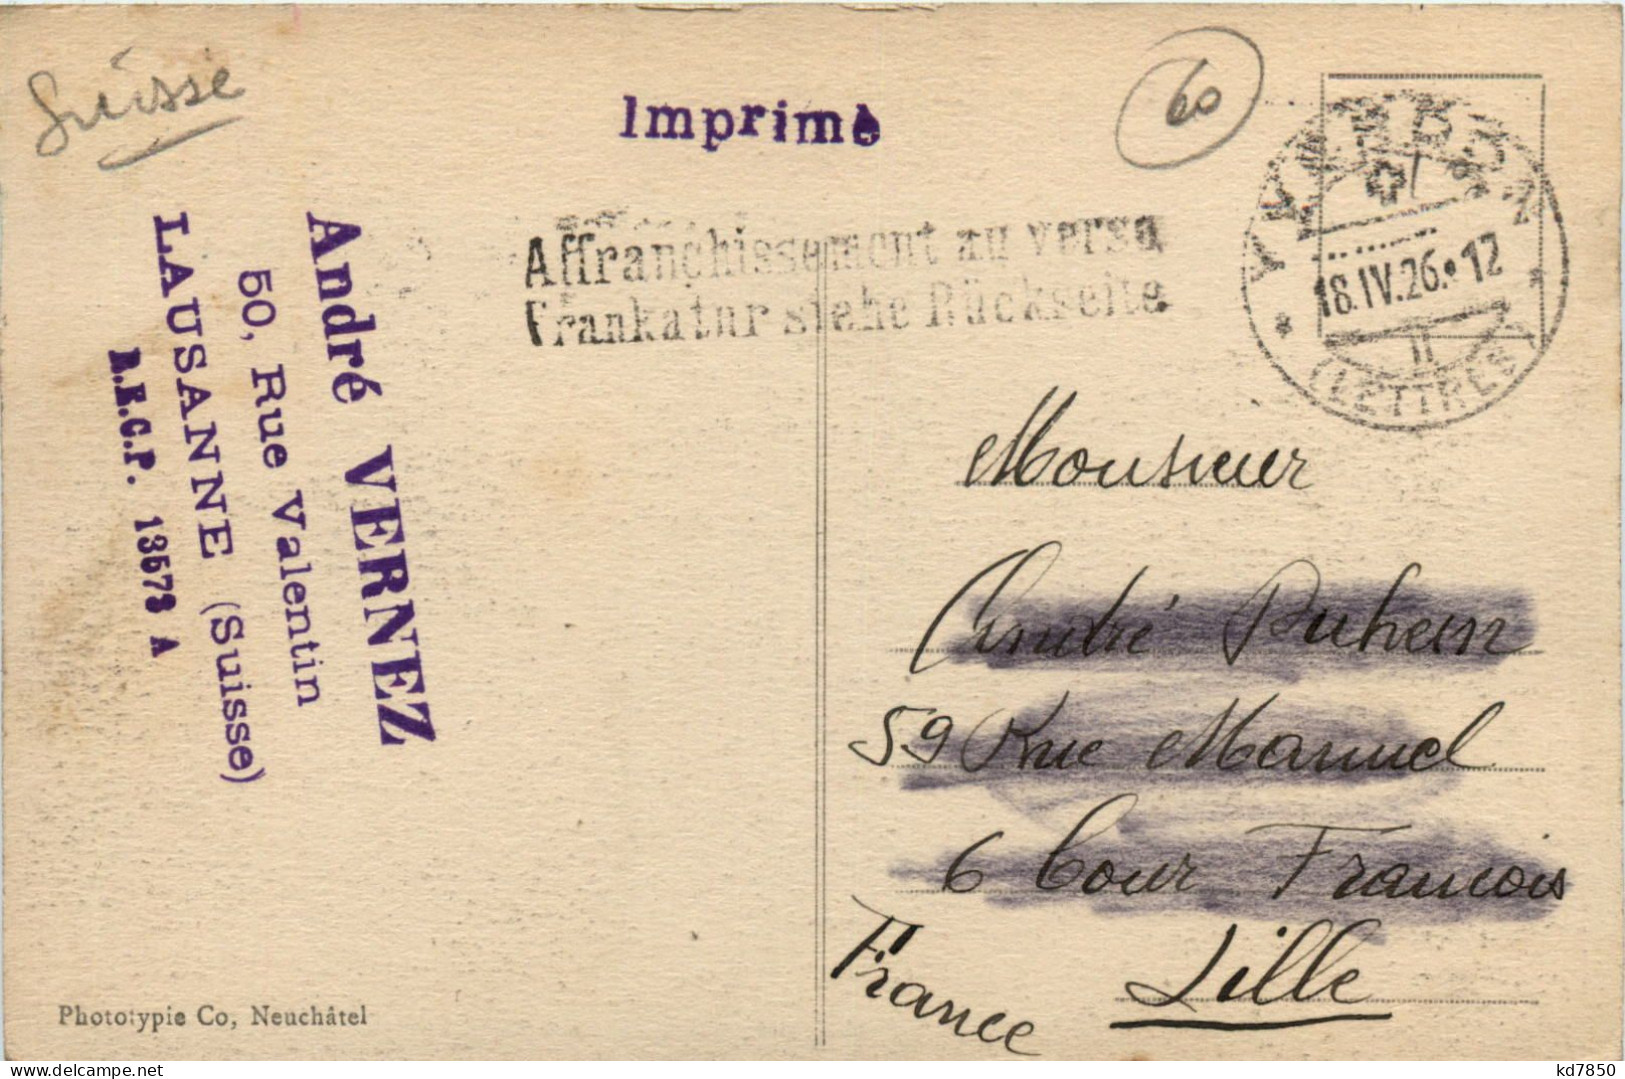 Suisse
Imprimé
60
YVERDON
18.IV.26.12
II
(LETTRES)
Affranchissement au verso
Frankatur siehe Rückseite
André VERNEZ
50, Rue Valentin
LAUSANNE (Suisse)
13573 A
Monsieur
André Duhem
59 Rue Manuel
6 Cour Francois
Lille
France
Phototypie Co, Neuchâtel
kd7850